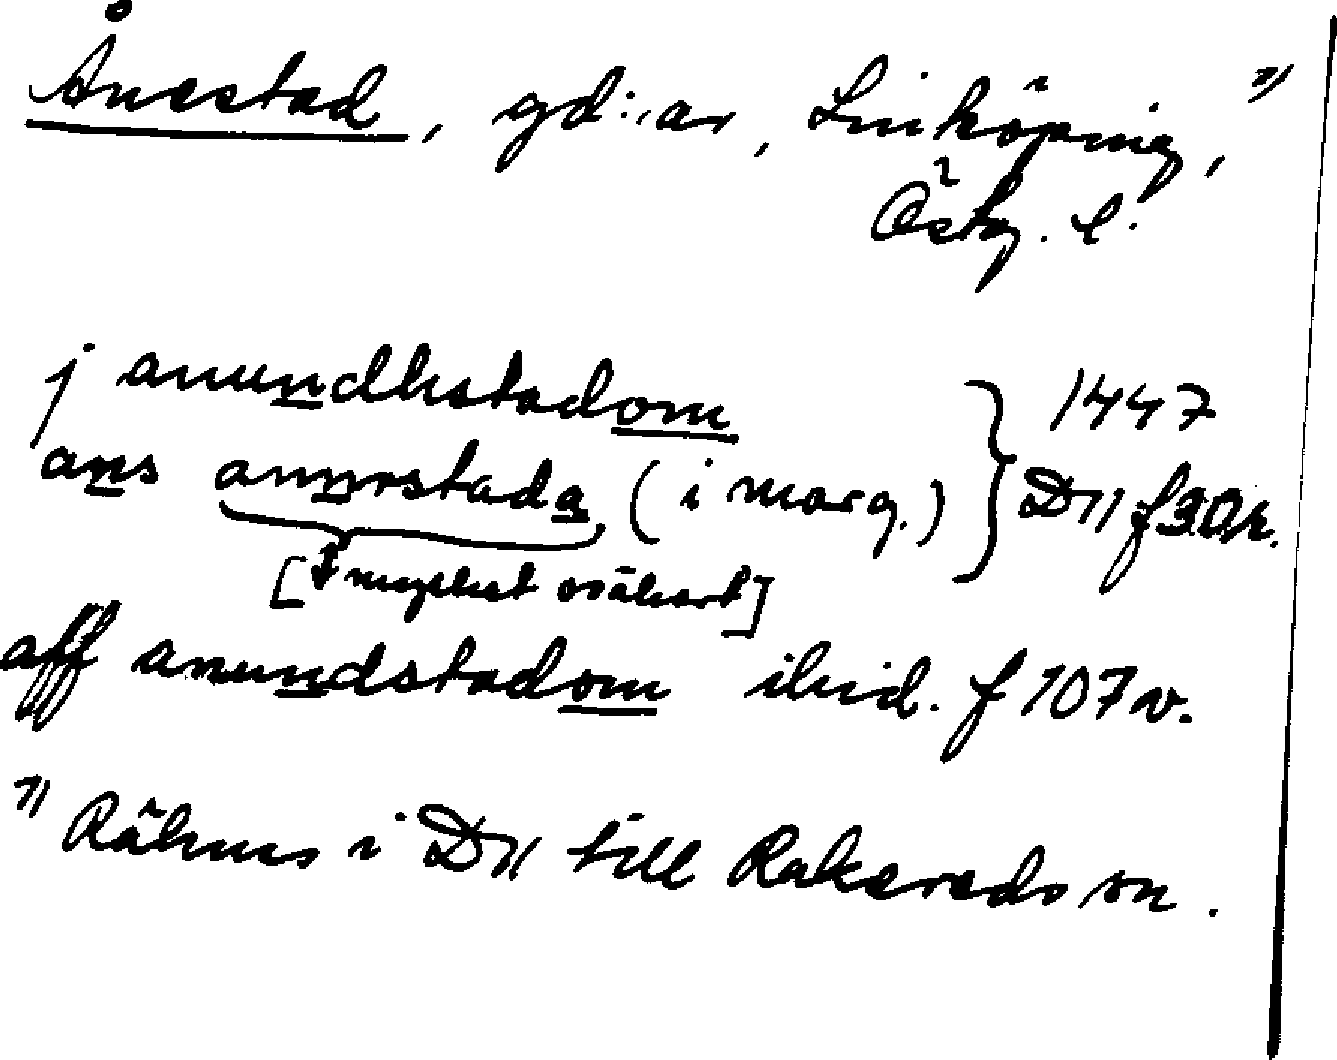 Ånestad, gd:ar, Linköping, 1)
Östg. l.
j anundhstadom
ans anunstada (i marg.)
1447
D11 f 30 r.
[mycket osäkert]
aff anundstadom ibid. f 107 v.
1) Räknas i D11 till Rakereds sn.